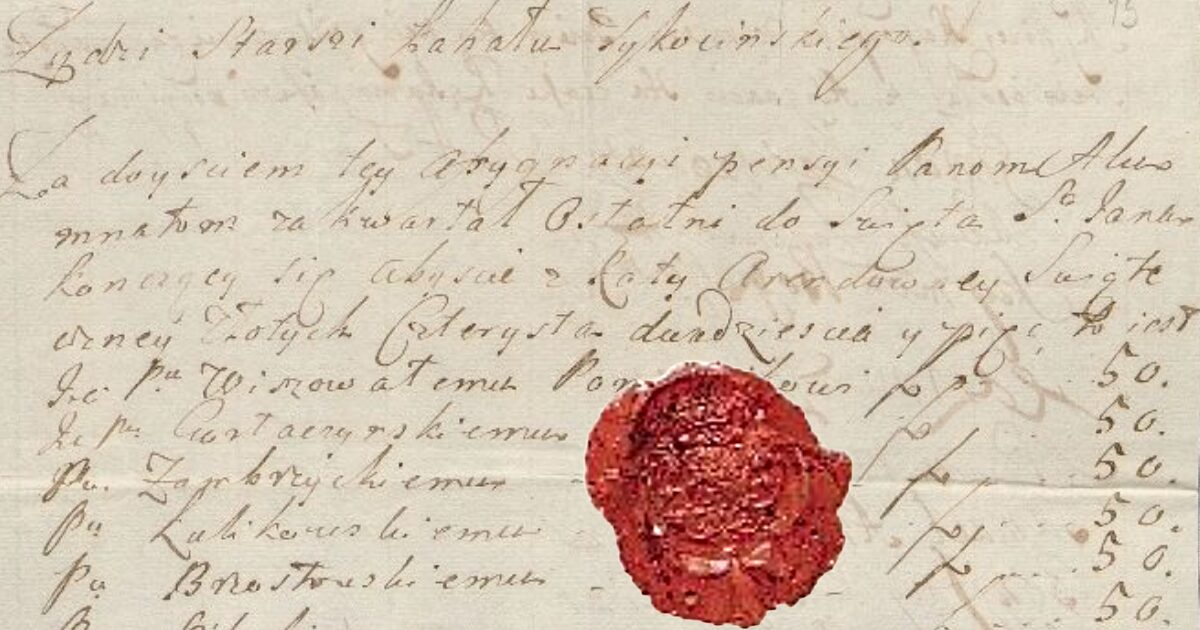 13
Żydzi Starsi Kahału Tykocinskiego.
Za doysciem tey Assygnacyi pensyi Panom Alu
mnatom za kwartał Ostatni do Swięta Sº Jana
konczący się abyscie z Raty Arendowney Swięte
czney Złotych Czterysta dwadziescia y pięć to iest
Je pu Wiszowatemu zp 50.
Je pu zp 50.
Pu. Zambrzyckiemu - zp 50.
Pu Kulikowskiemu - zp 50.
Pu Brzostowskiemu - zp 50.
50.